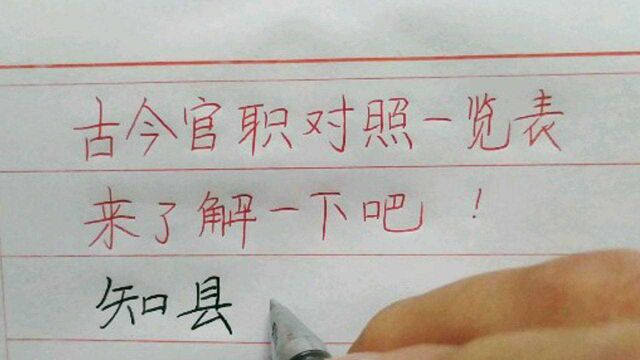 古今官职对照一览表
来了解一下吧！
知县